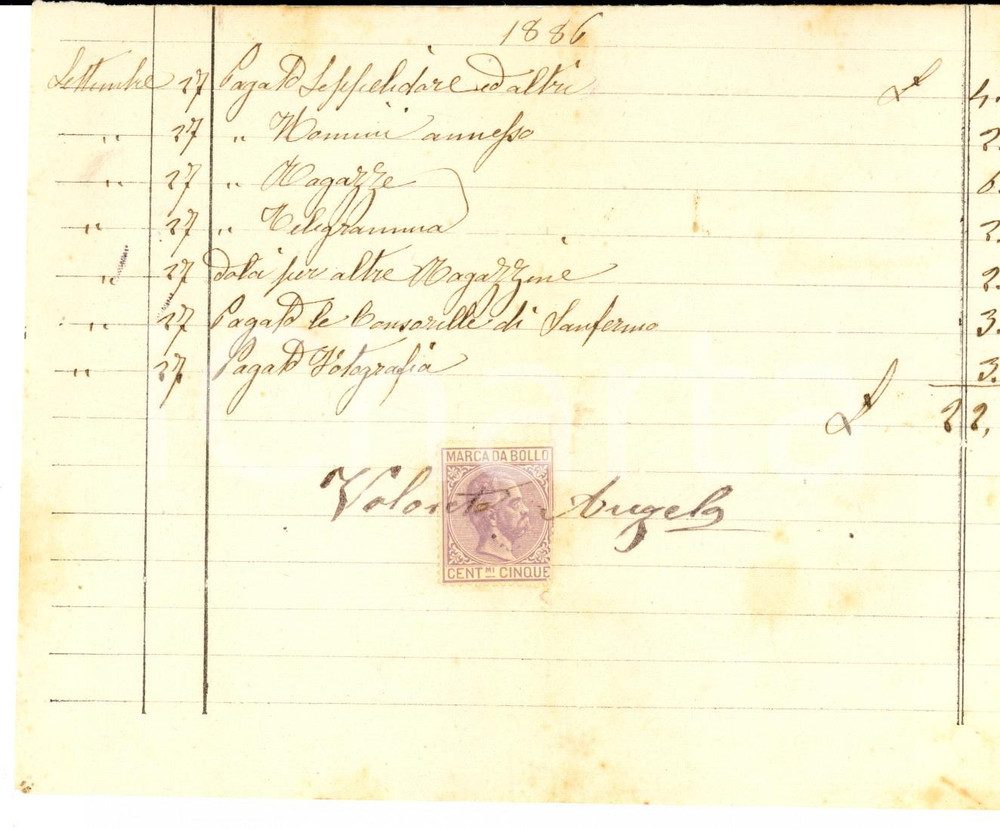 1886
Settembre 27 Pagato Seppelidore ed altri £ 4.
" 27 " Uomini annesso 2.
" 27 " Ragazze 6.
" 27 " Telegramma 2.
" 27 Dati per altre Ragazzine 2.
" 27 Pagato le Consorille di Sanfermo 3.
" 27 Pagato Fotografia 3.
£ 22,
MARCA DA BOLLO
Angelo
CENT.MI CINQUE